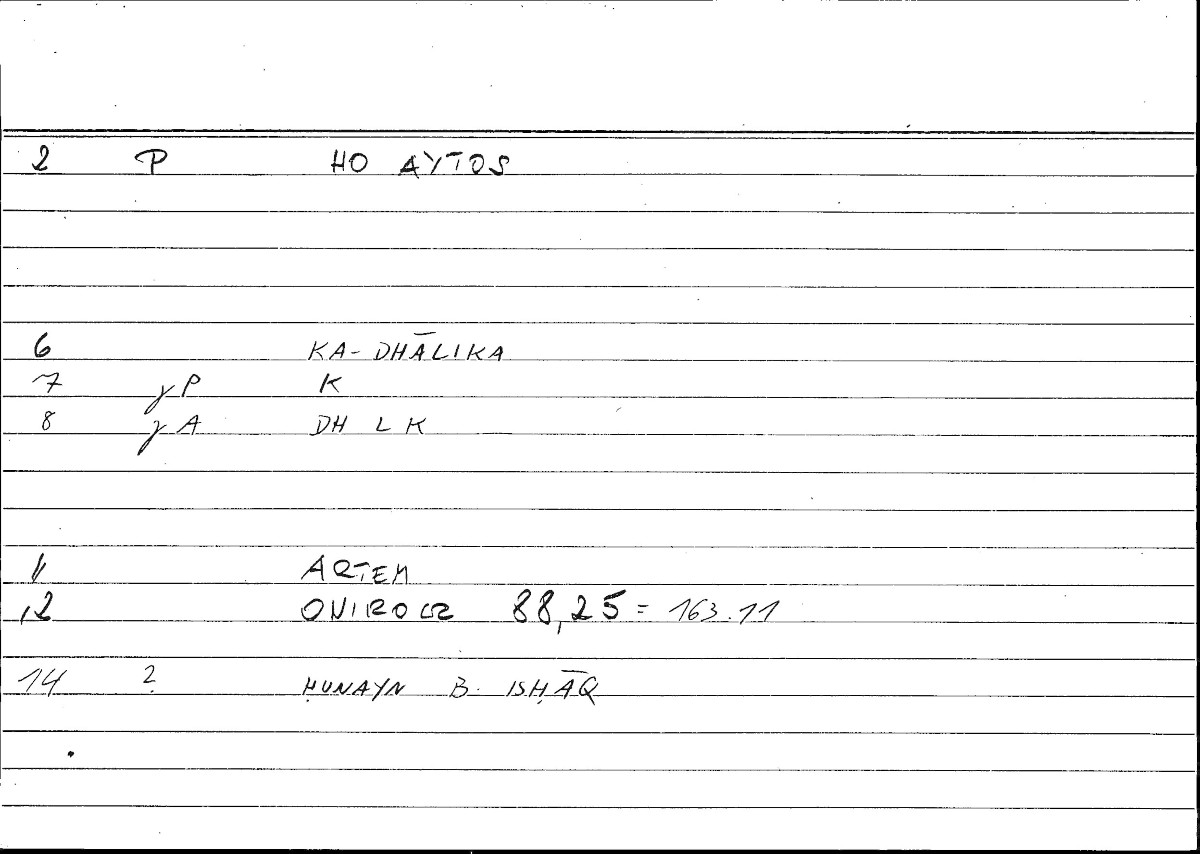 2 P HO AYTOS
6 KA-DHĀLIKA
7 γP K
8 γA DH L K
11 ARTEM
12 ONIROCR 88,25 = 163.11
14 ? ḤUNAYN B. ISḤĀQ